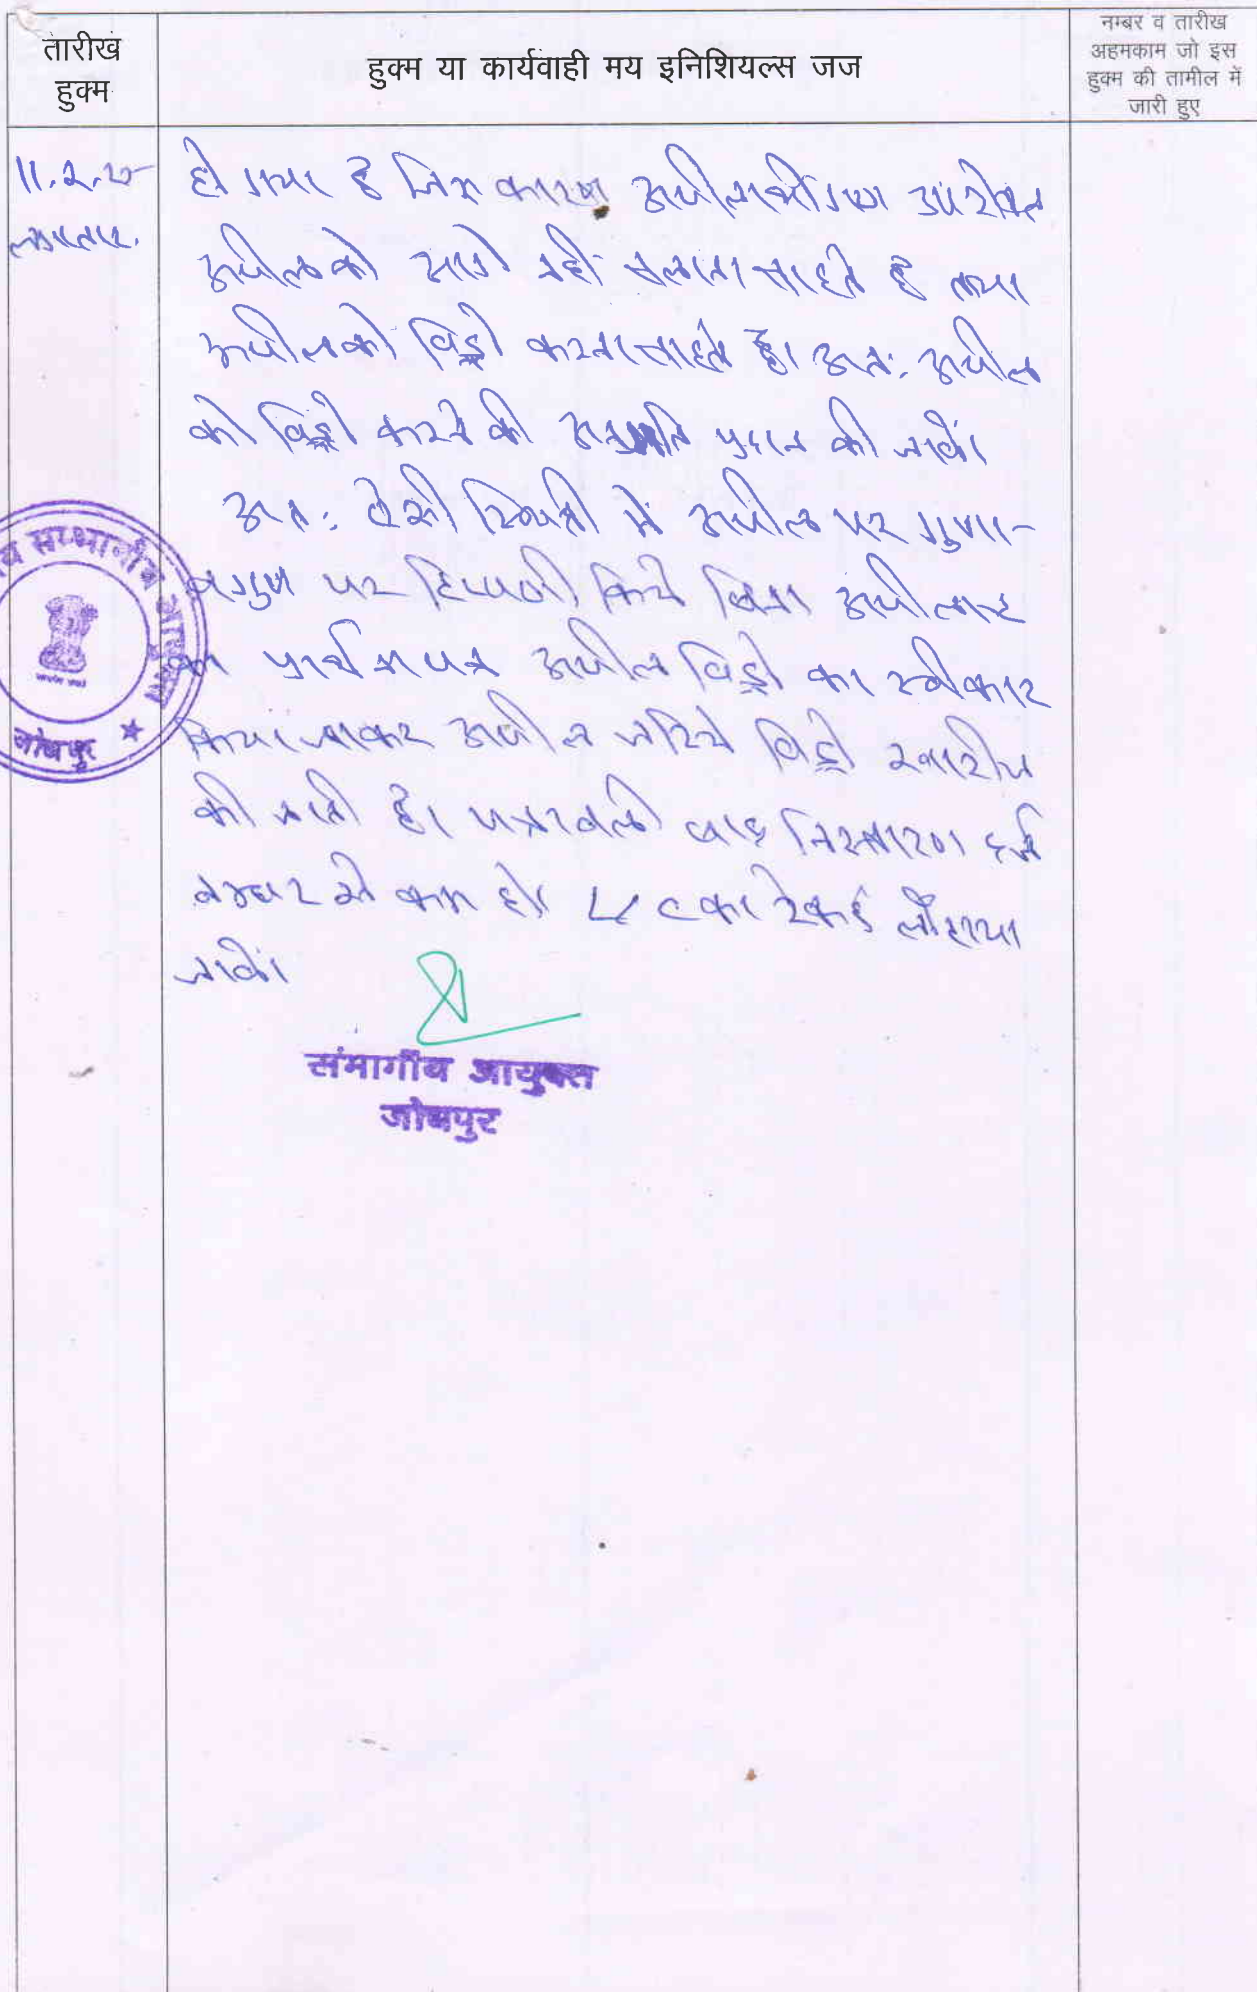 तारीख
हुक्म
हुक्म या कार्यवाही मय इनिशियल्स जज
नम्बर व तारीख
अहमकाम जो इस
हुक्म की तामील में
जारी हुए
11.2.25
लगातार.
हो गया है जिस कारण अपीलार्थीगण उपरोक्त
अपील को आगे नहीं चलाना चाहते है तथा
अपील को विड्रो करना चाहते है। अतः अपील
को विड्रो करने की अनुमति प्रदान की जावें।
अतः ऐसी स्थिती में अपील पर गुणा-
वगुण पर टिप्पणी किये बिना अपीलान्ट
का प्रार्थनापत्र अपील विड्रो का स्वीकार
किया जाकर अपील जरिये विड्रो खारीज
की जाती है। पत्रावली बाद निस्तारण दर्ज
नम्बर से कम हो। LC का रेकर्ड लौटाया
जावें।
सम्भागीय आयुक्त
जोधपुर
संभागीय आयुक्त
जोधपुर